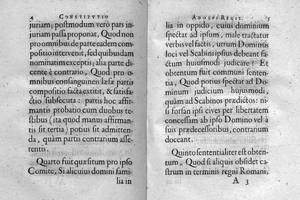 4 CONSTITVTIO
juriam, postmodum verò pars in-
juriam passa proponat, Quod non
promotione de parte eadem com-
positio intervenit, sed quibusdam
nominatim exceptis; alia parte di-
cente è contrario, Quod pro o-
mnibus consanguineis læsæ partis
compositio facta extitit, & satisfa-
ctio subsecuta: partis hoc affir-
mantis probatio cum duobus te-
stibus (ita quod manus affirman-
tis sit tertia) potius sit admitten-
da, quàm partis contrarium asse-
rentis.
Quartò fuit quæsitum pro ipso
Comite, Si alicuius domini fami-
lia in
lia in oppido, cuius dominium
spectat ad ipsum, malè tractatur
verbis vel factis, utrum Dominus
loci vel Scabini ipsius debent fa-
ctum huiusmodi judicare? Et
obtentum extitit quod sententia-
liter, Quod potius spectat ad Do-
minum judicium hujusmodi,
quàm ad Scabinos prædictos: ni-
si forsan ipsi cives per libertatem
concessam ab ipso Domino vel à
suis prædecessoribus, contrarium
docerent.
Quintò sententialiter est obten-
tum, Quod si aliquis obsidet ca-
strum in terminis regni Romani,
A 3